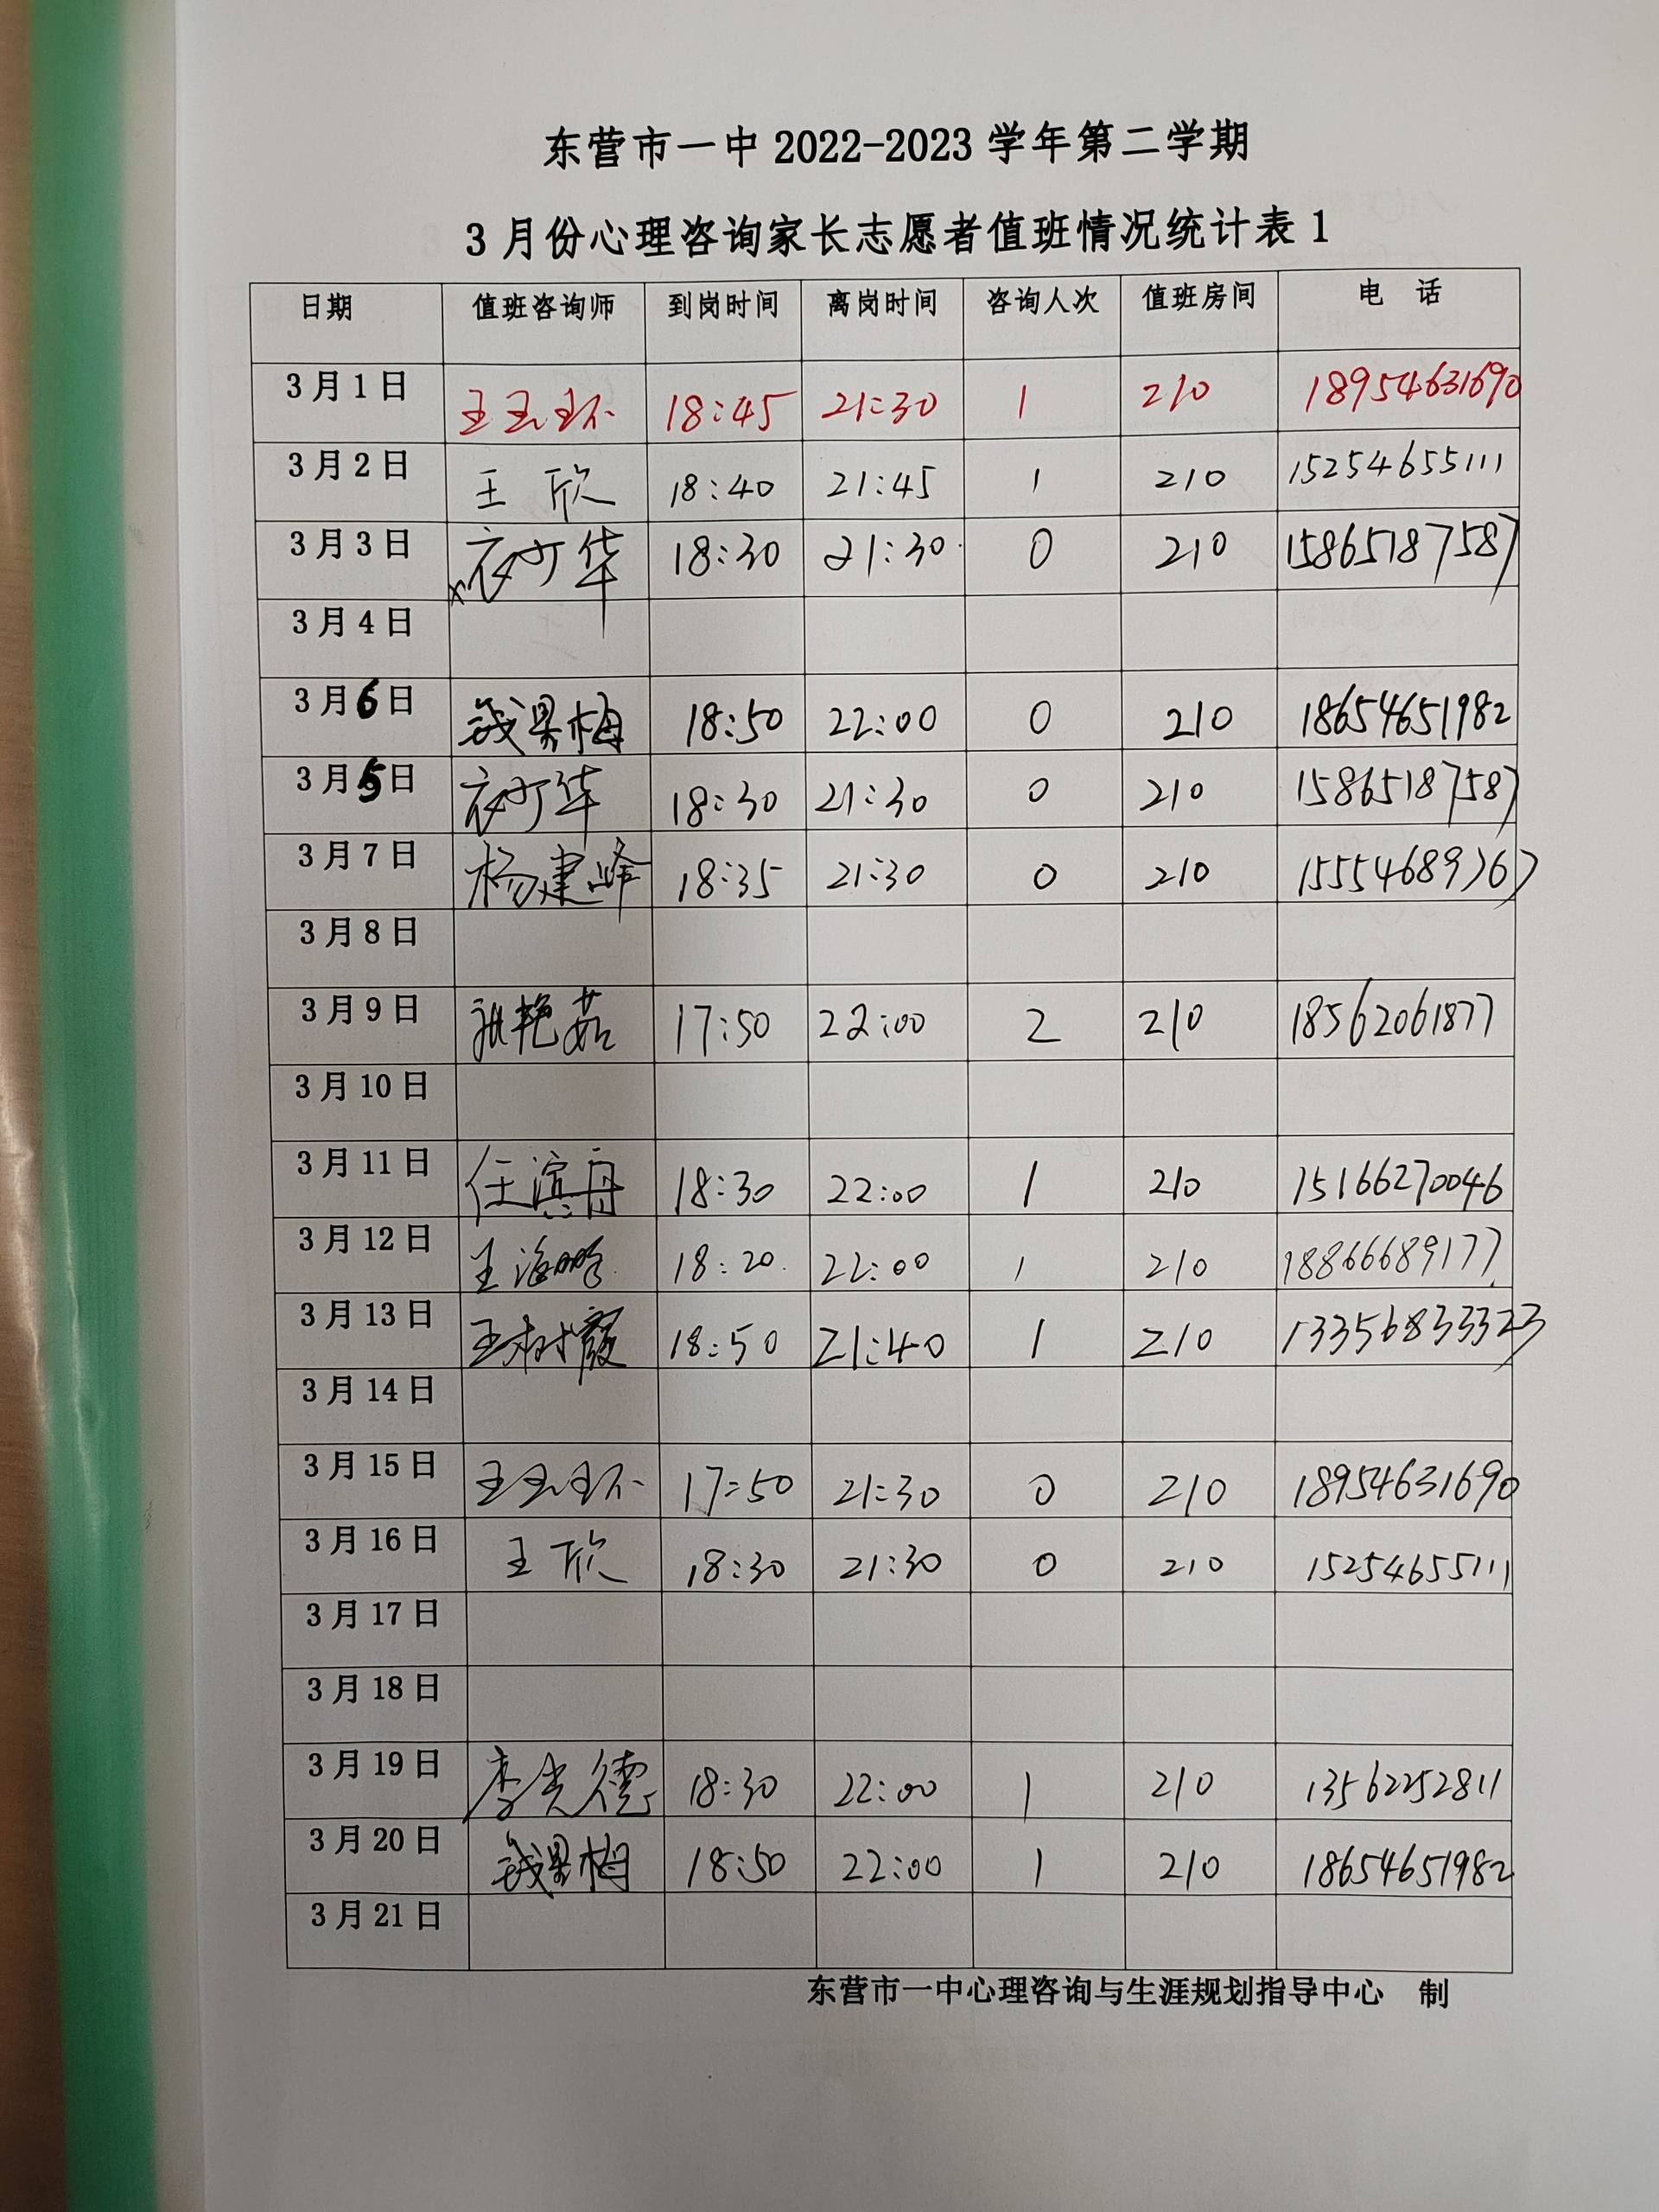 东营市一中 2022-2023 学年第二学期
3 月份心理咨询家长志愿者值班情况统计表 1
日期 值班咨询师 到岗时间 离岗时间 咨询人次 值班房间 电 话
3 月 1 日 王玉环 18:45 21:30 1 210 18954631690
3 月 2 日 王 欣 18:40 21:45 1 210 15254655111
3 月 3 日 衣少华 18:30 21:30 0 210 15865187587
3 月 4 日
3 月 6 日 钱果梅 18:50 22:00 0 210 18654651982
3 月 5 日 衣少华 18:30 21:30 0 210 15865187587
3 月 7 日 杨建峰 18:35 21:30 0 210 15554689767
3 月 8 日
3 月 9 日 张艳茹 17:50 22:00 2 210 18562061877
3 月 10 日
3 月 11 日 任滨舟 18:30 22:00 1 210 15166270046
3 月 12 日 王海鹏 18:20 22:00 1 210 18866689177
3 月 13 日 王树霞 18:50 21:40 1 210 13356833323
3 月 14 日
3 月 15 日 王玉环 17:50 21:30 0 210 18954631690
3 月 16 日 王 欣 18:30 21:30 0 210 15254655111
3 月 17 日
3 月 18 日
3 月 19 日 李光德 18:30 22:00 1 210 13562252811
3 月 20 日 钱果梅 18:50 22:00 1 210 18654651982
3 月 21 日
东营市一中心理咨询与生涯规划指导中心 制